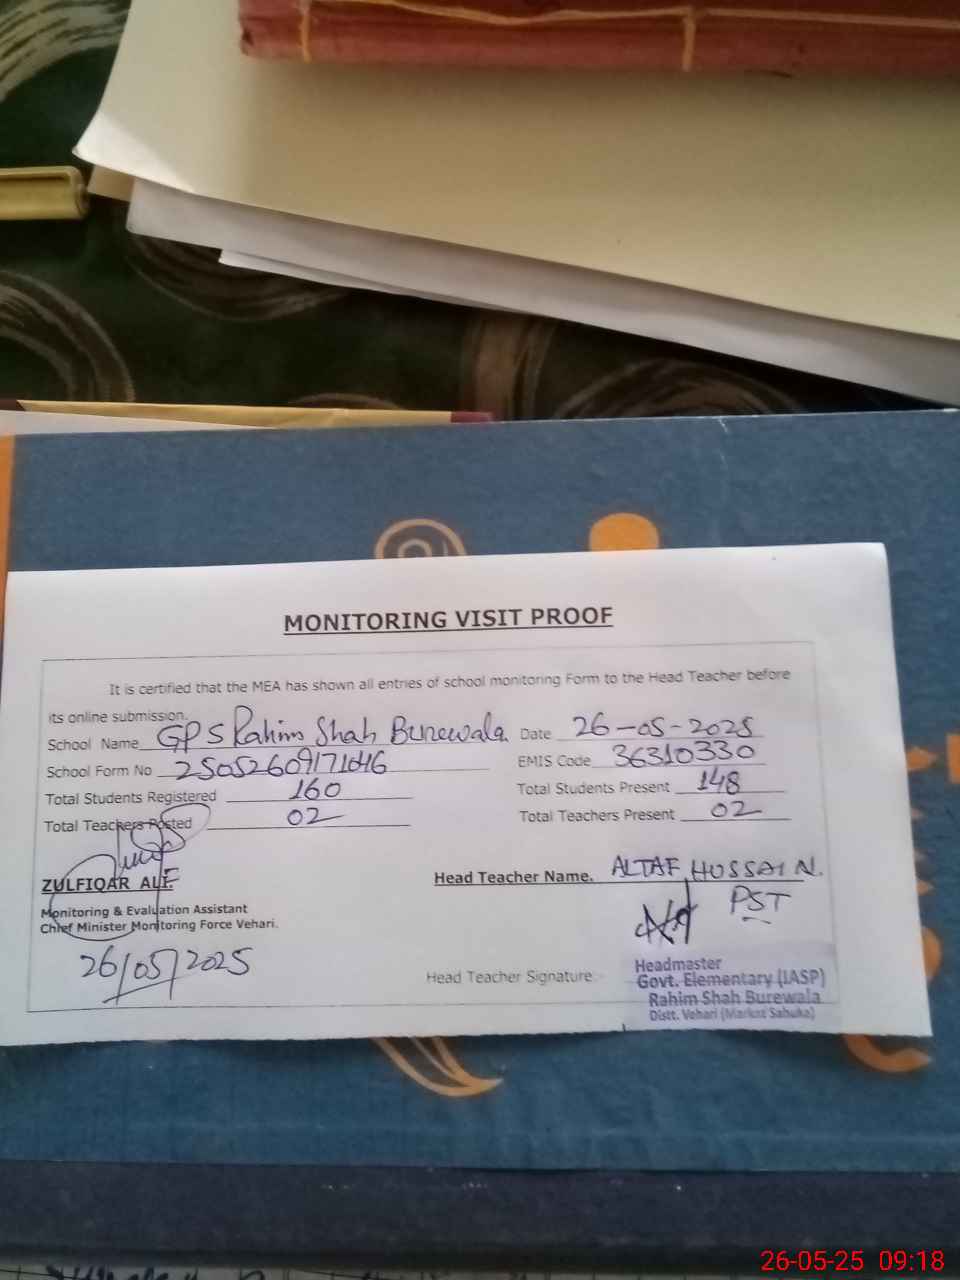 MONITORING VISIT PROOF
It is certified that the MEA has shown all entries of school monitoring Form to the Head Teacher before
its online submission.
School Name GPS Rahim Shah Burewala Date 26-05-2025
School Form No 25052609171046 EMIS Code 36310330
Total Students Registered 160 Total Students Present 148
Total Teachers Posted 02 Total Teachers Present 02
ZULFIQAR ALI. Head Teacher Name. ALTAF HUSSAIN.
Monitoring & Evaluation Assistant PST
Chief Minister Monitoring Force Vehari.
26/05/2025
Head Teacher Signature:-
Headmaster
Govt. Elementary (IASP)
Rahim Shah Burewala
Distt. Vehari (Markaz Sahuka)
26-05-25 09:18